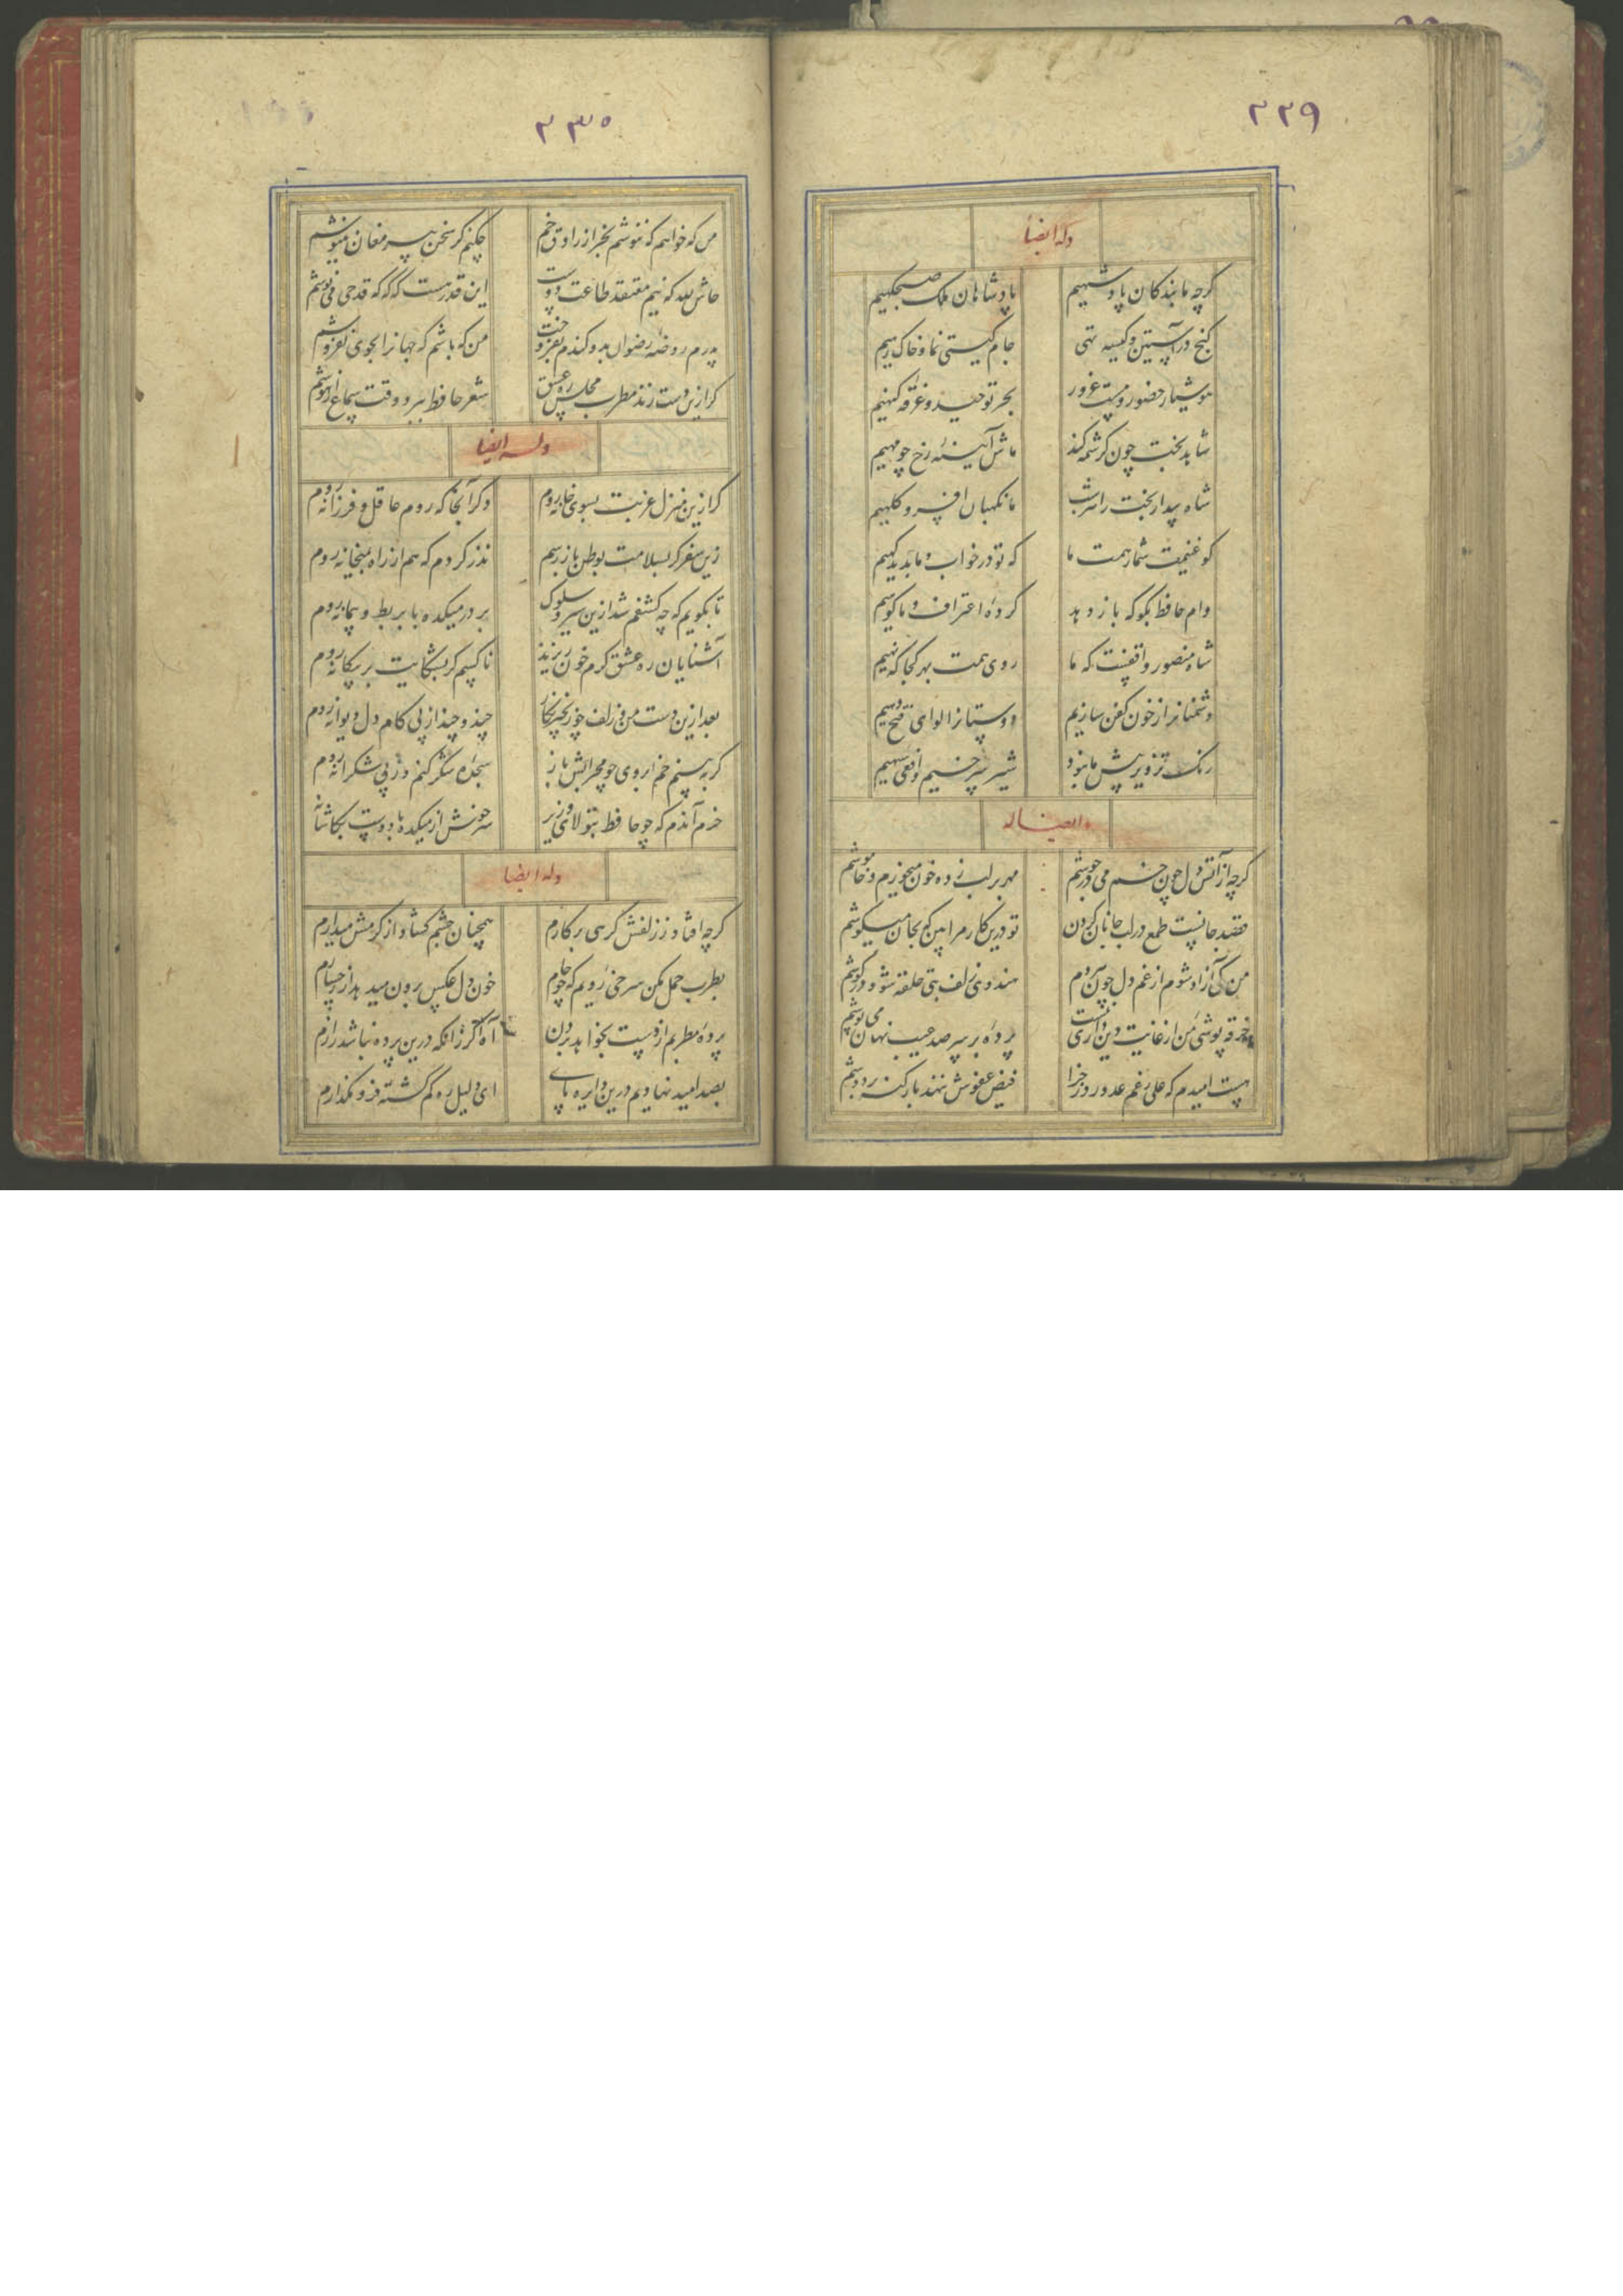 ۲۲۹
وله ایضاً
کرچه ما بندکان پادشهیم
پادشاهان ملک صبحکهیم
کنج در آستین و کیسه تهی
جام کیتی نما و خاک رهیم
هوشیار حضور و مست غرور
بحر توحید و غرقه کنهیم
شاهد بخت چون کرشمه کند
ماش آئینهٔ رخ چو مهیم
شاه بیدار بخت را هر شب
ما نکهبان افسر و کلهیم
کو غنیمت شمار همت ما
که تو در خواب و ما بدیدکهیم
وام حافظ بکو که باز دهد
کردهٔ اعتراف و ما کوهیم
شاه منصور واقفست که ما
روی همت بهر کجا که نهیم
دشمنانرا ز خون کفن سازیم
دوستانرا لوای فتح دهیم
رنک تزویر پیش ما نبود
شیر سرخیم و افعی سیهیم
وایضاله
کرچه از آتش دل چون خم می در جوشم
مهر بر لب زده خون میخورم و خاموشم
قصد جانست طمع در لب جانان کردن
تو درین کار مرا بین که بجان میکوشم
من کی آزاد شوم از غم دل چون هر دم
هندوی زلف بتی حلقه شود در کوشم
خرقه پوشی من از غایت دین داری نیست
پردهٔ بر سر صد عیب نهان می پوشم
هست امیدم که علی رغم عدو روز جزا
فیض عفوش ننهد بار کنه بر دوشم
۲۳۰
من که خواهم که ننوشم بجز از راوق خم
چکنم کر سخن پیر مغان ننیوشم
حاش لله که نیم معتقد طاعت دوست
این قدر هست که که که قدحی می نوشم
پدرم روضه رضوان بدو کندم بفروخت
من که باشم که جهانرا بجوی نفروشم
کر ازین دست زند مطرب مجلس ره عشق
شعر حافظ ببرد وقت سماع از هوشم
وله ایضا
کر ازین منزل غربت بسوی خانه روم
وکر آنجا که روم عاقل و فرزانه روم
زین سفر کر بسلامت بوطن باز رسم
نذر کردم که هم از راه بمیخانه روم
تا بکویم که چه کشفم شد ازین سیر و سلوک
بر در میکده با بربط و پیمانه روم
آشنایان ره عشق کرم خون ریزند
ناکسم کر بشکایت بر بیکانه روم
بعد ازین دست من و زلف چو زنجیر نکار
چند و چند از پی کام دل دیوانه روم
کر به بینم خم ابروی چو محرابش باز
سجدهٔ شکر کنم وز پی شکرانه روم
خرم آندم که چو حافظ بتولای وزیر
سرخوش از میکده با دوست بکاشانه
وله ایضا
کرچه افتاد ز زلفش کرهی بر کارم
همچنان چشم کشاد از کرمش میدارم
بطرب حمل مکن سرخی رویم که چو جام
خون دل عکس برون میدهد از رخسارم
پردهٔ مطربم از دست بخواهد بردن
آه اکر زانکه درین پرده نباشد بارم
بصد امید نهادیم درین دایره پای
ای دلیل ره کم کشته فرو مکذارم